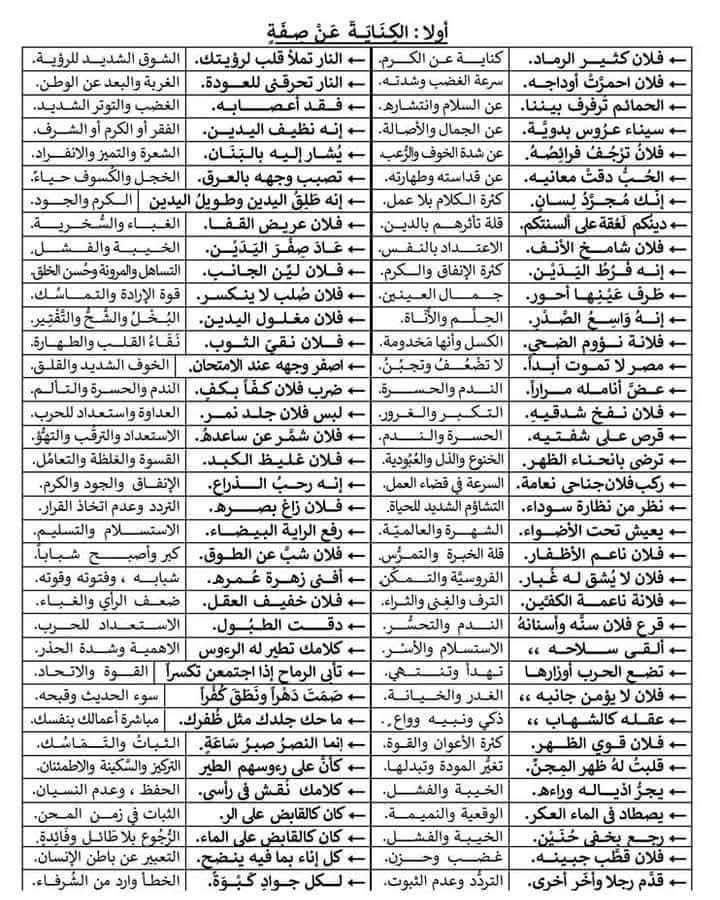 أولا : الكِنَايَةُ عَنْ صِفَةٍ
← فلان كثير الرماد. كناية عن الكرم. ← النار تملأ قلب لرؤيتك. الشوق الشديد للرؤية.
← فلان احمرَّتْ أوداجه. سرعة الغضب وشدته. ← النار تحرقني للعودة. الغربة والبعد عن الوطن.
← الحمائم ترفرف بيننا. عن السلام وانتشاره. ← فقد أعصابه. الغضب والتوتر الشديد.
← سيناء عروس بدويَّة. عن الجمال والأصالة. ← إنه نظيف اليدين. الفقر أو الكرم أو الشرف.
← فلانُ ترْجُفُ فرائِصُهُ. عن شدة الخوف والرُّعب. ← يُشار إليه بالبَنَان. الشعرة والتميز والانفراد.
← الحُبُّ دقتْ معانيه. عن قداسته وطهارته. ← تصبب وجهه بالعرق. الخجل والكُسوف حياءً.
← إنَّك مُجرَّدُ لِسانٍ. كثرة الكلام بلا عمل. ← إنه طَلِقُ اليدين وطويلُ اليدين الكرم والجود.
← دينُكم لَعْقة على ألسنتكم. قلة تأثرهم بالدين. ← فلان عريض القفا. الغباء والسُّخرية.
← فلان شامخ الأنف. الاعتداد بالنفس. ← عَادَ صِفْرَ اليَدَيْن. الخيبة والفشل.
← إنه فُرُطُ اليَدَيْن. كثرة الإنفاق والكرم. ← فلان ليّن الجانب. التساهل والمرونة وحُسن الخلق.
← طَرف عَيْنِها أحور. جمال العينين. ← فلان صُلب لا ينكسر. قوة الإرادة والتماسُك.
← إنهُ وَاسِعُ الصَّدْرِ. الحِلْم والأَنَاة. ← فلان مغلول اليدين. البُخْلُ والشُّحُّ والتَّقْتِير.
← فلانة نؤوم الضحي. الكسل وأنها مَخدومة. ← فلان نقيّ الثوب. نَقَاءُ القلب والطهارة.
← مصر لا تموت أبداً. لا تضْعُفُ وتجبُنُ. ← اصفر وجهه عند الامتحان. الخوف الشديد والقلق.
← عضَّ أنامله مراراً. الندم والحسرة. ← ضرب فلان كفّاً بكفٍ. الندم والحسرة والتألم.
← فلان نفخ شدقيهِ. التكبر والغرور. ← لبس فلان جلد نمر. العداوة واستعداد للحرب.
← قرص على شفتيه. الحسرة والندم. ← فلان شمَّر عن ساعدهُ. الاستعداد والترقُب والتهوُّ.
← ترضى بانحناء الظهر. الخنوع والذل والعُبُودية. ← فلان غليظ الكبد. القسوة والغلظة والتعامُل.
← ركب فلان جناحى نعامة. السرعة في قضاء العمل. ← إنه رحبُ الذراع. الإنفاق والجود والكرم.
← نظر من نظارة سوداء. التشاؤم الشديد للحياة. ← فلان زاغ بصره. التردد وعدم اتخاذ القرار.
← يعيش تحت الأضواء. الشهرة والعالميّة. ← رفع الراية البيضاء. الاستسلام والتسليم.
← فلان ناعم الأظفار. قلة الخبرة والتمرُّس. ← فلان شبَّ عن الطوق. كبر وأصبح شباباً.
← فلان لا يُشق له غُبار. الفروسيَّة والتمكّن. ← أفنى زهرة عُمره. شبابه ، وفتوته وقوته.
← فلانة ناعمة الكفَّين. الترف والغِنى والثراء. ← فلان خفيف العقل. ضعف الرأي والغباء.
← قرع فلان سنَّه وأسنانهُ الندم والتحسُّر. ← دقت الطبُول. الاستعداد للحرب.
← ألقى سلاحه ،، الاستسلام والأسْر. ← كلامك تطير له الرءوس الاهمية وشدة الحذر.
← تضع الحرب أوزارها تهدأ وتنتهي. ← تأبى الرماح إذا اجتمعن تكسراً القوة والاتحاد.
← فلان لا يؤمن جانبه ،، الغدر والخيانة. ← صَمَتَ دَهْراً ونَطَقَ كُفْراً سوء الحديث وقبحه.
← عقله كالشهاب ،، ذكي ونبيه وواعٍ. ← ما حك جلدك مثل ظُفرك. مباشرة أعمالك بنفسك.
← فلان قوي الظهر. كثرة الأعوان والقوة. ← إنما النصرُ صبرُ سَاعَةٍ. الثبات والتَّمَاسُك.
← قلبتْ لهُ ظَهر المِجنّ. تغيُّر المودة وتبدلها. ← كأنَّ على رءوسهم الطير التركيز والسَّكينة والاطمئنان.
← يجرُّ اذياله وراءه. الخيبة والفشل. ← كلامك نُقش في رأسى. الحفظ ، وعدم النسيان.
← يصطاد في الماء العكر. الوقعية والنميمة. ← كان كالقابض على الر. الثبات في زمن المحن.
← رجع بخفى حُنَيْن. الخيبة والفشل. ← كان كالقابض على الماء. الرُّجُوع بلا طائل وفَائِدةٍ.
← فلان قطَّب جبينه. غضب وحزن. ← كل إناء بما فيه ينضح. التعبير عن باطن الإنسان.
← قدَّم رجلا وأخَر أخرى. التردُّد وعدم الثبوت. ← لكل جوادٍ كَبْوَةٌ. الخطأ وارد من الشُرفاء.